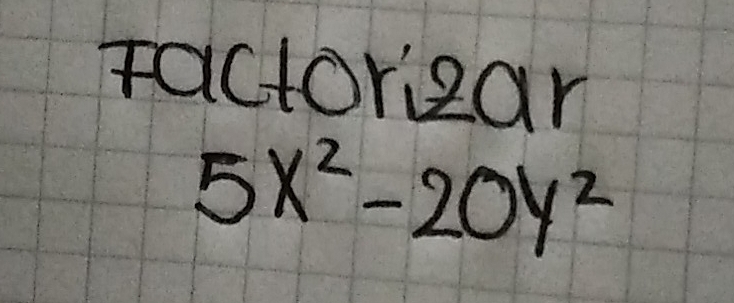 Factorizar
5x² - 20y²